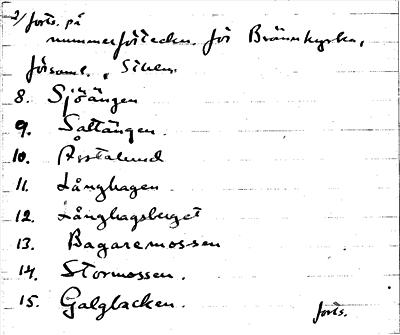 2/ forts. på
nummerförteckn. för Brännkyrka,
församl., Sthlm.
8. Sjöängen
9. Saltängen.
10. Årstalund
11. Långhagen.
12. Långhagsberget
13. Bagaremossen
14. Stormossen.
15. Galgbacken.
forts.